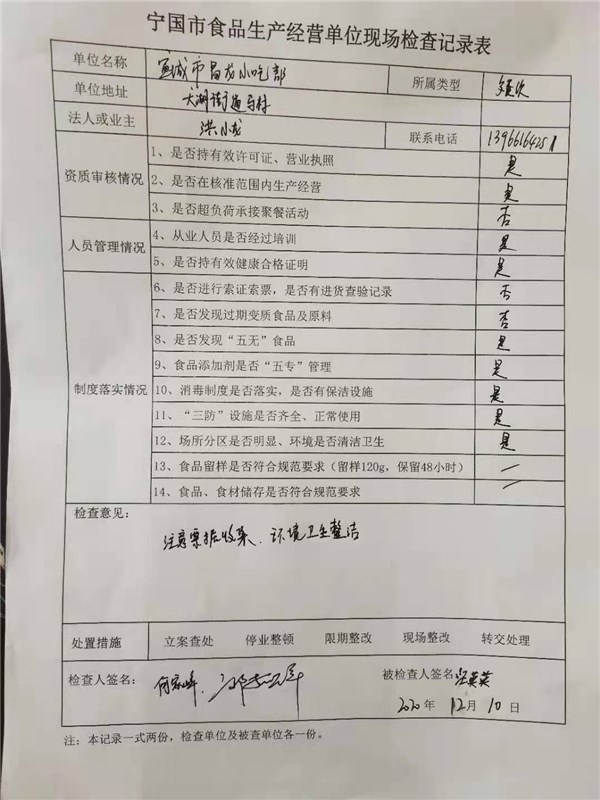 宁国市食品生产经营单位现场检查记录表
单位名称 宣城市昌龙小吃部 所属类型
单位地址 天湖街道马村
法人或业主 洪小龙 联系电话
资质审核情况
1、是否持有效许可证、营业执照 是
2、是否在核准范围内生产经营 是
3、是否超负荷承接聚餐活动 否
人员管理情况
4、从业人员是否经过培训 是
5、是否持有效健康合格证明 是
制度落实情况
6、是否进行索证索票，是否有进货查验记录 否
7、是否发现过期变质食品及原料 否
8、是否发现“五无”食品 是
9、食品添加剂是否“五专”管理 是
10、消毒制度是否落实，是否有保洁设施 是
11、“三防”设施是否齐全、正常使用 是
12、场所分区是否明显、环境是否清洁卫生 是
13、食品留样是否符合规范要求（留样120g，保留48小时） —
14、食品、食材储存是否符合规范要求 —
检查意见：
注意票据收集、环境卫生整洁
处置措施 立案查处 停业整顿 限期整改 现场整改 转交处理
检查人签名： 被检查人签名
2020年 12月 10日
注：本记录一式两份，检查单位及被查单位各一份。